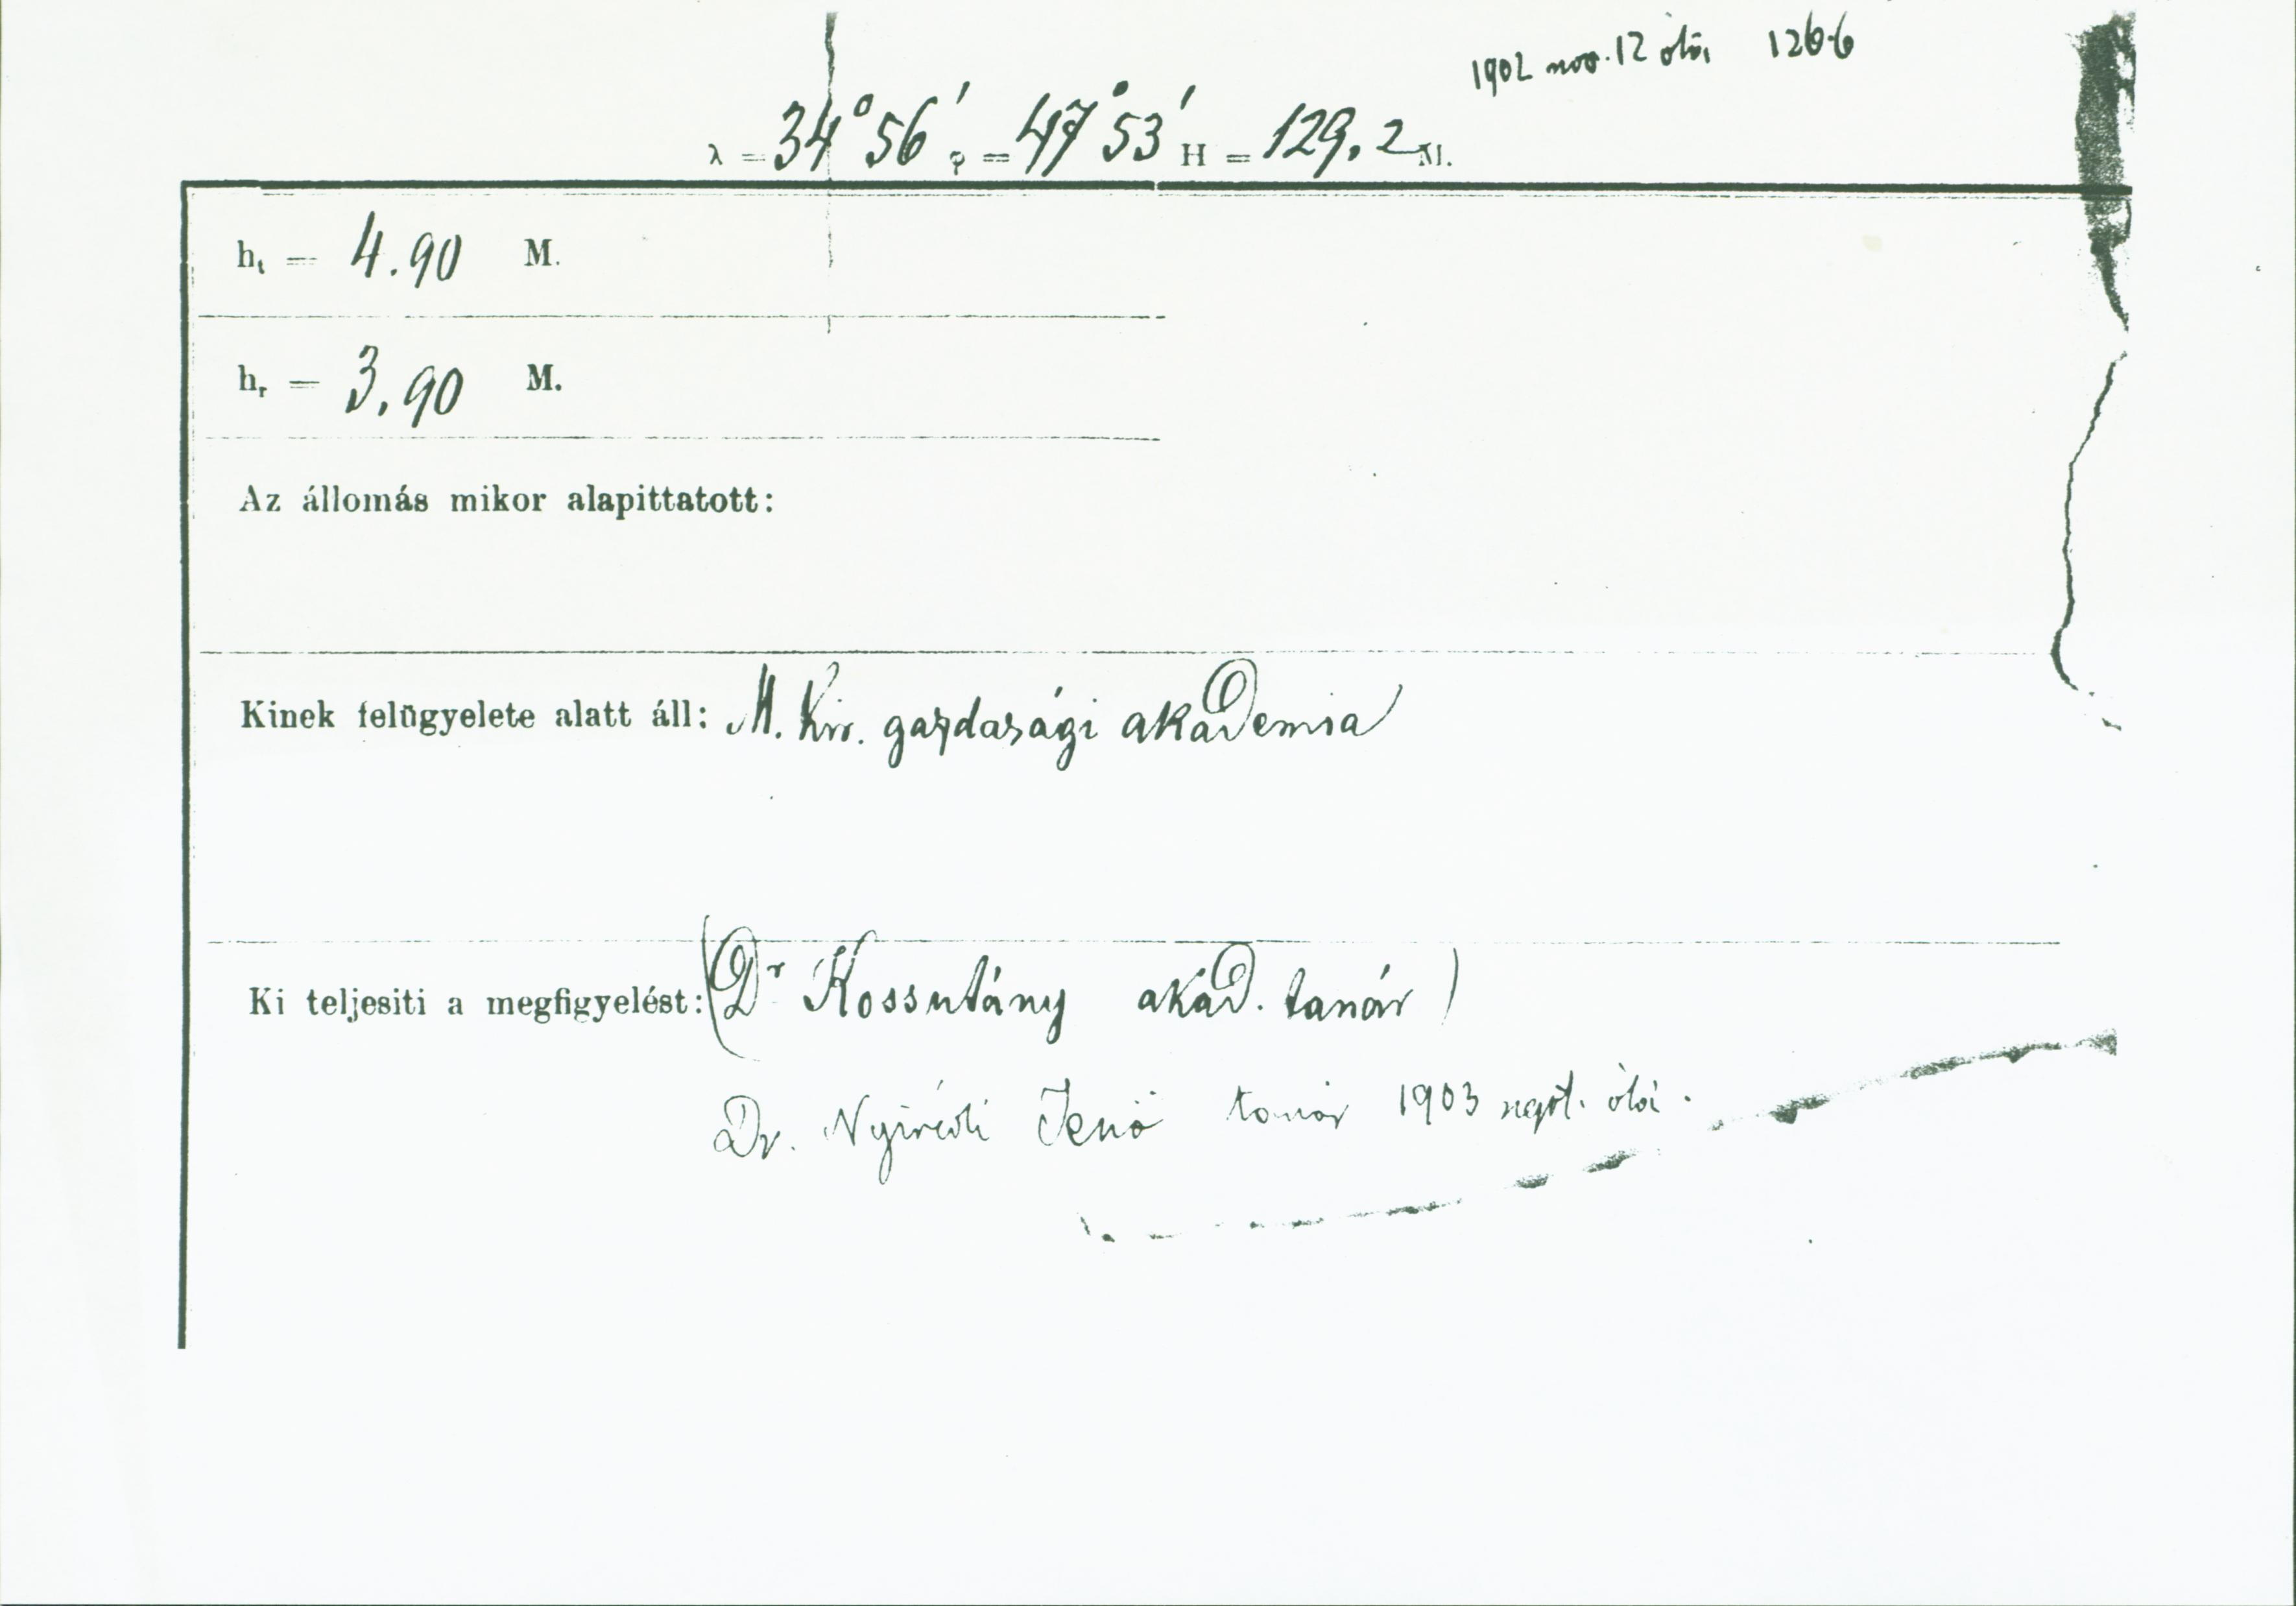 1902 nov. 12 óta 126.6
λ = 34° 56′ φ = 47° 53′ H = 129.2 M.
h_t = 4.90 M.
h_r = 3.90 M.
Az állomás mikor alapittatott:
Kinek felügyelete alatt áll: M. Kir. gazdasági akademia
Ki teljesiti a megfigyelést: (Dr Kossutány akad. tanár)
Dr. Nyirédi Jenő tanár 1903 sept. óta.